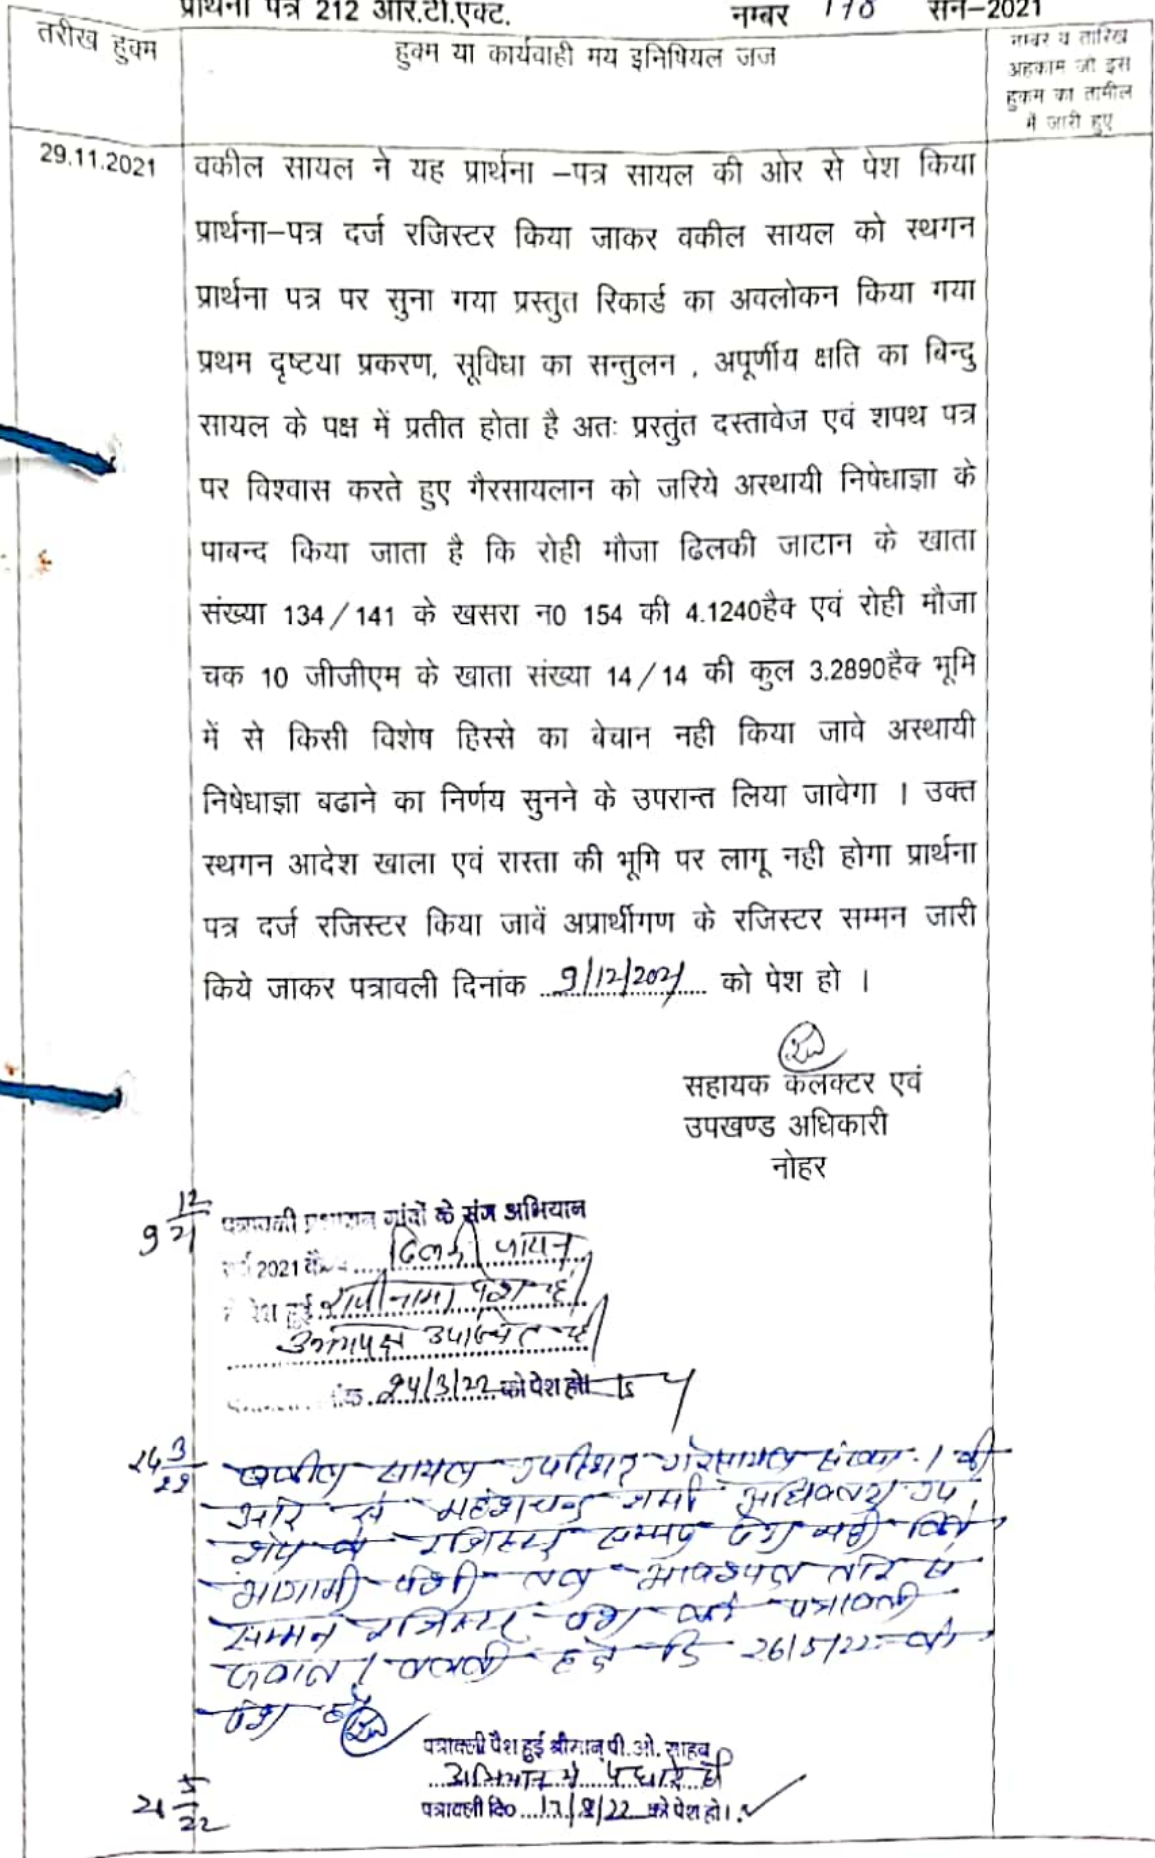 प्रार्थना पत्र 212 आर.टी.एक्ट. नम्बर 170 सन-2021
तरीख हुक्म
हुक्म या कार्यवाही मय इनिषियल जज
नम्बर व तारिख
अहकाम जो इस
हुकम का तामील
में जारी हुए
29.11.2021
वकील सायल ने यह प्रार्थना –पत्र सायल की ओर से पेश किया
प्रार्थना–पत्र दर्ज रजिस्टर किया जाकर वकील सायल को स्थगन
प्रार्थना पत्र पर सुना गया प्रस्तुत रिकार्ड का अवलोकन किया गया
प्रथम दृष्टया प्रकरण, सूविधा का सन्तुलन , अपूर्णीय क्षति का बिन्दु
सायल के पक्ष में प्रतीत होता है अतः प्रस्तुंत दस्तावेज एवं शपथ पत्र
पर विश्वास करते हुए गैरसायलान को जरिये अस्थायी निषेधाज्ञा के
पाबन्द किया जाता है कि रोही मौजा ढिलकी जाटान के खाता
संख्या 134/141 के खसरा न0 154 की 4.1240हैक एवं रोही मौजा
चक 10 जीजीएम के खाता संख्या 14/14 की कुल 3.2890हैक भूमि
में से किसी विशेष हिस्से का बेचान नही किया जावे अस्थायी
निषेधाज्ञा बढाने का निर्णय सुनने के उपरान्त लिया जावेगा । उक्त
स्थगन आदेश खाला एवं रास्ता की भूमि पर लागू नही होगा प्रार्थना
पत्र दर्ज रजिस्टर किया जावें अप्रार्थीगण के रजिस्टर सम्मन जारी
किये जाकर पत्रावली दिनांक 9/12/2021 को पेश हो ।
सहायक कलक्टर एवं
उपखण्ड अधिकारी
नोहर
9 12/21
पत्रावली प्रशासन गांवों के संग अभियान
2021 कैम्प
पेश हुई राजीनामा पेश
उभयपक्ष उपस्थित
24/3/22 को पेश हो।
24 3/22
वकील सायल उपस्थित गैरसायल संख्या. 1 की
ओर से महेशचन्द्र शर्मा अधिवक्ता उप
शेष के रजिस्टर सम्मन पेश नही किये
आगामी पेशी तक आवश्यक
सम्मन रजिस्टर पेश करे पत्रावली
26/5/22 को
पेश हो
5/22
पत्रावली पेश हुई श्रीमान् पी.ओ. साहब
अभियान मे पधारे है
पत्रावली दि0 17/8/22 को पेश हो।